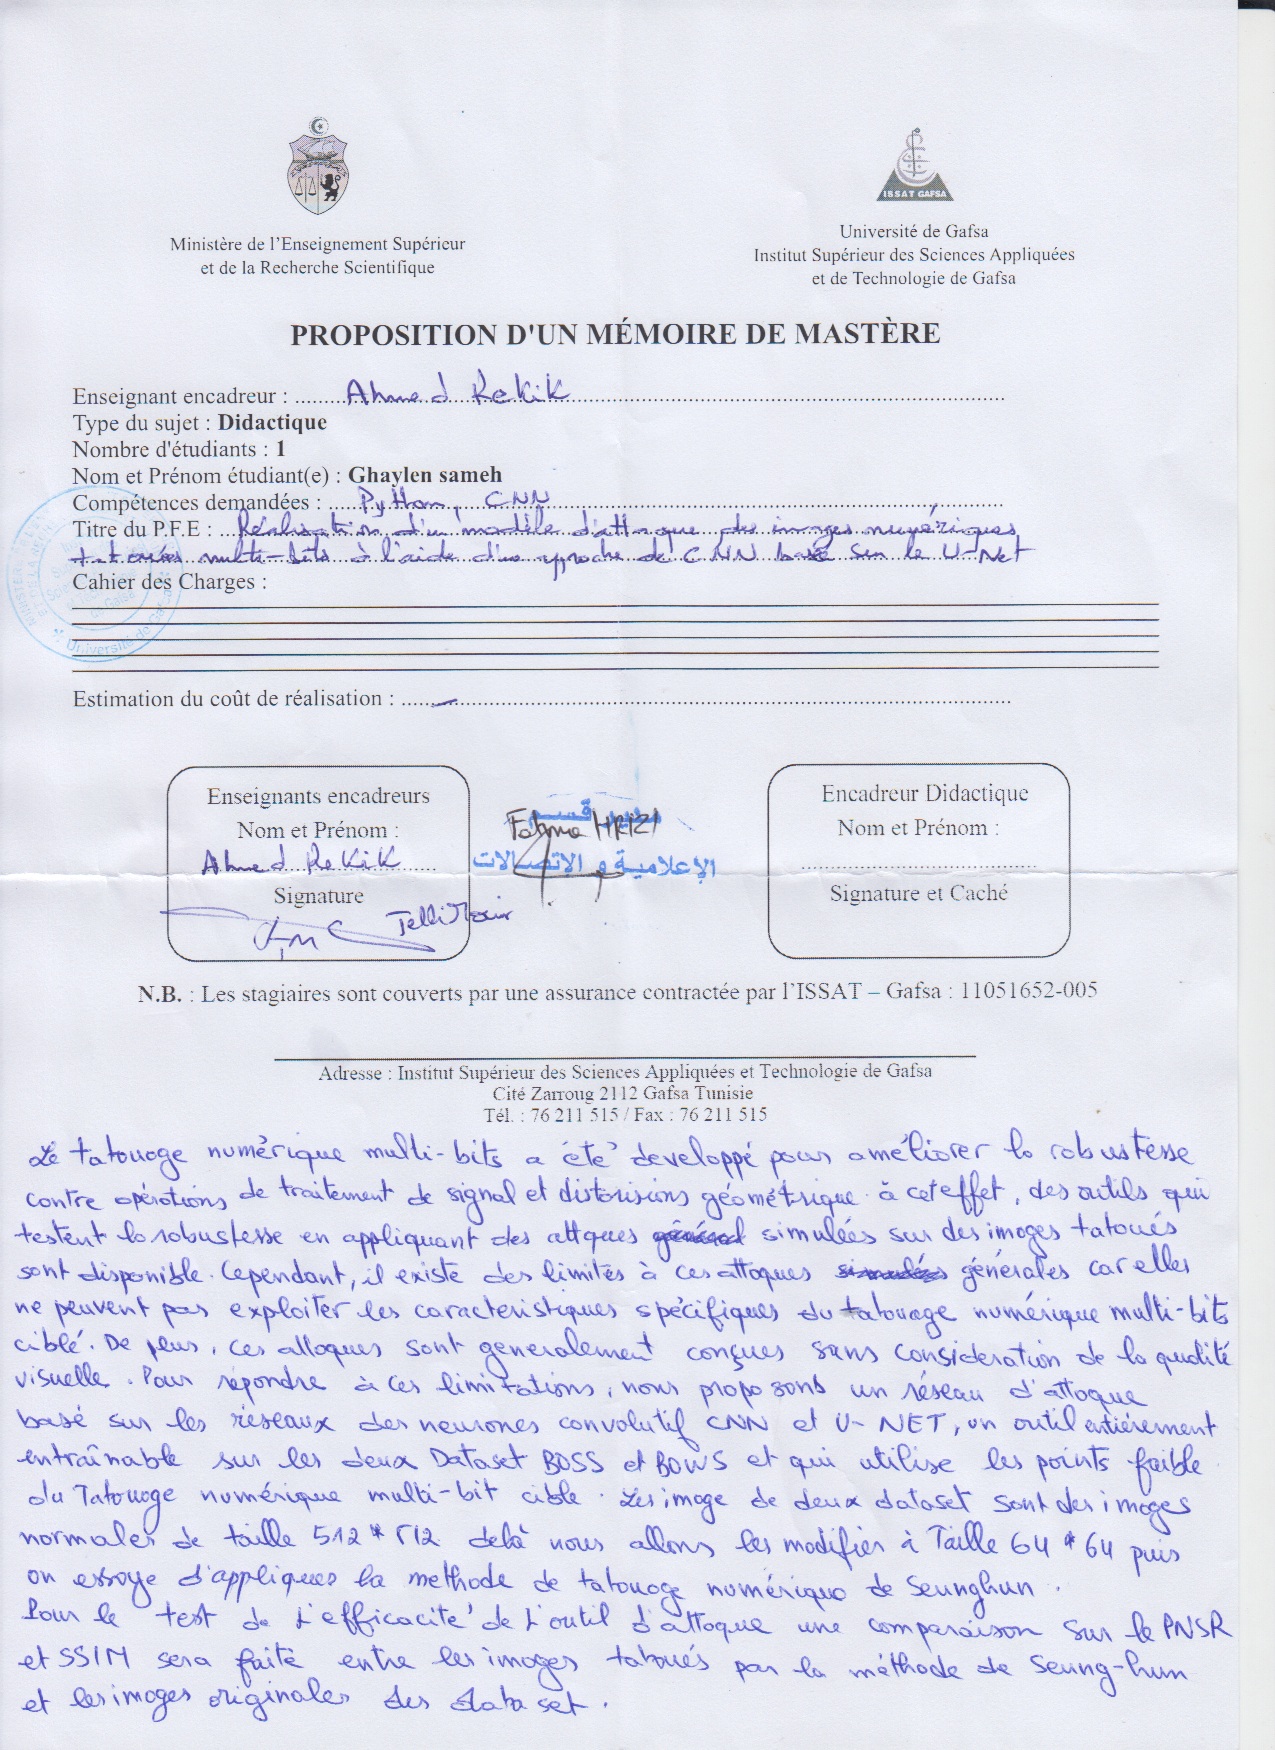 ISSAT GAFSA
Ministère de l'Enseignement Supérieur
et de la Recherche Scientifique
Université de Gafsa
Institut Supérieur des Sciences Appliquées
et de Technologie de Gafsa
PROPOSITION D'UN MÉMOIRE DE MASTÈRE
Enseignant encadreur : Ahmed Rekik
Type du sujet : Didactique
Nombre d'étudiants : 1
Nom et Prénom étudiant(e) : Ghaylen sameh
Compétences demandées : Python, CNN
Titre du P.F.E : Réalisation d'un modèle d'attaque des images numériques
tatouées multi-bits à l'aide d'une approche de CNN basé sur le U-Net
Cahier des Charges :
Université de Gafsa
Estimation du coût de réalisation : -
Enseignants encadreurs
Nom et Prénom :
Ahmed Rekik
Signature
Fatma HRIZI
مدير قسم
الإعلامية و الاتصالات
Encadreur Didactique
Nom et Prénom :
Signature et Caché
N.B. : Les stagiaires sont couverts par une assurance contractée par l'ISSAT – Gafsa : 11051652-005
Adresse : Institut Supérieur des Sciences Appliquées et Technologie de Gafsa
Cité Zarroug 2112 Gafsa Tunisie
Tél. : 76 211 515 / Fax : 76 211 515
Le tatouage numérique multi-bits a été developpé pour améliorer la robustesse
contre opérations de traitement de signal et distorisions géométrique. à cet effet, des outils qui
testent la robustesse en appliquant des attques simulées sur des images tatoués
sont disponible. Cependant, il existe des limites à ces attaques générales car elles
ne peuvent pas exploiter les caracteristiques spécifiques du tatouage numérique multi-bits
ciblé. De plus, ces attaques sont generalement conçues sans consideration de la qualité
visuelle. Pour répondre à ces limitations, nous proposons un réseau d'attaque
basé sur les réseaux des neurones convolutif CNN et U-NET, un outil entiérement
entraînable sur les deux Dataset BOSS et BOWS et qui utilise les points faible
du Tatouage numérique multi-bit cible. Les image de deux dataset sont des images
normales de taille 512 * 512 delà nous allons les modifier à Taille 64 * 64 puis
on essaye d'appliquer la methode de tatouage numérique de Seunghun.
Pour le test de L'efficacité de L'outil d'attaque une comparaison sur le PNSR
et SSIM sera faite entre les images tatoués par la méthode de Seung-hun
et les images originales des dataset.